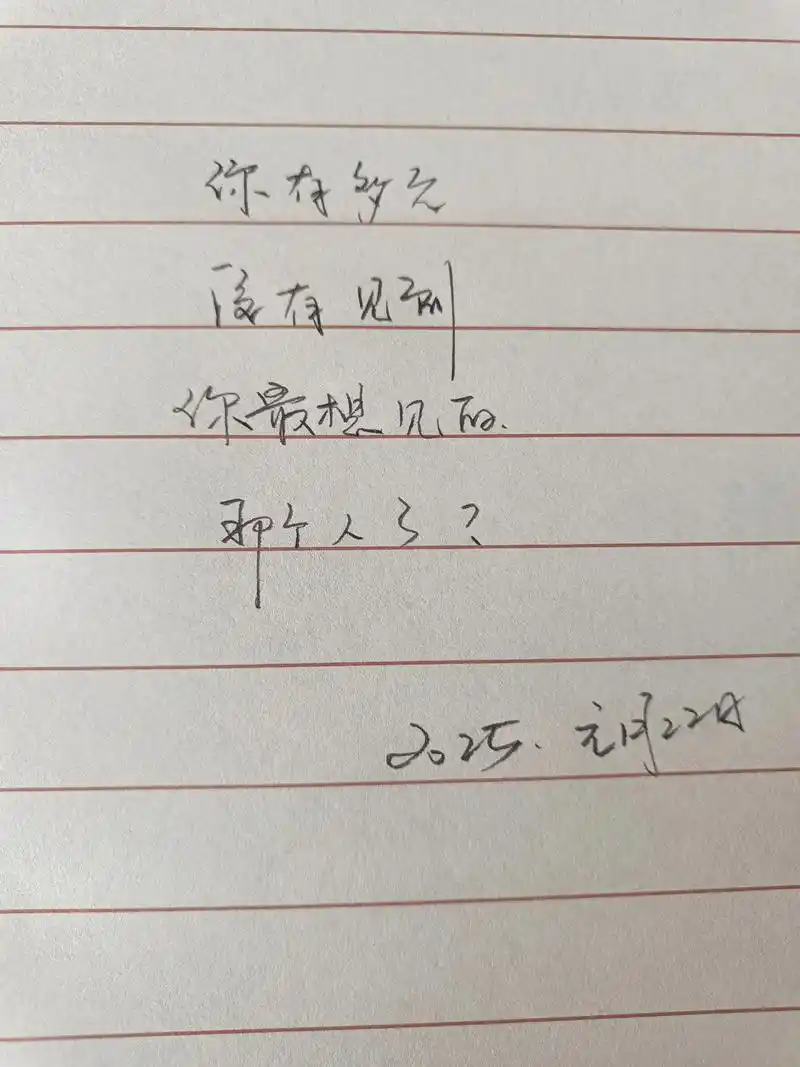 你有多久
没有见到
你最想见的
那个人了？
2025.元月22日